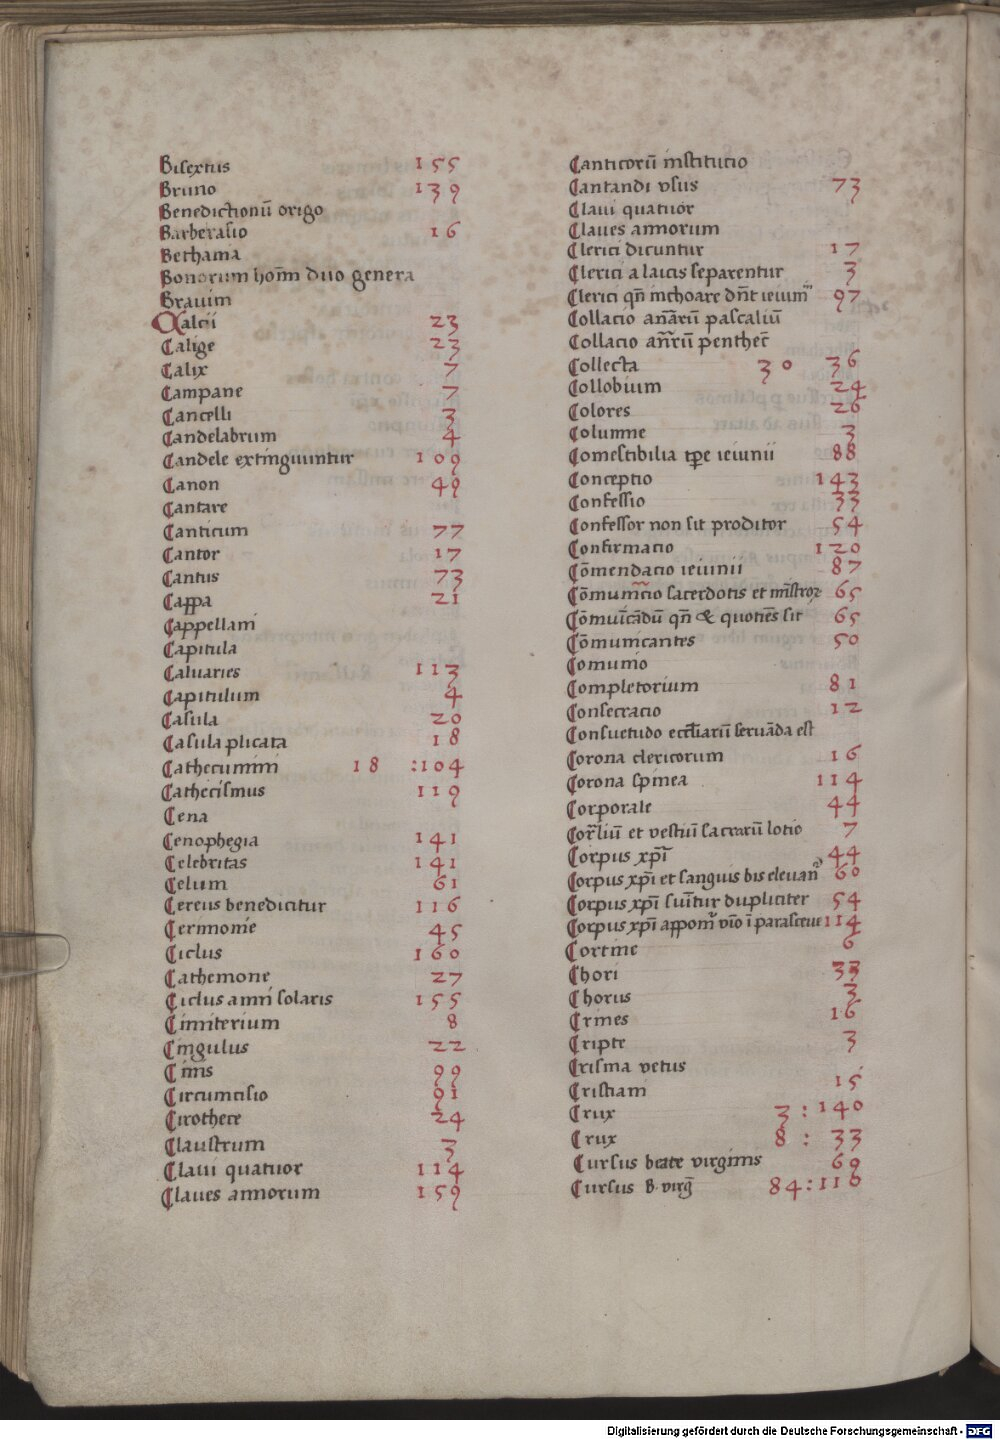 Bisextus 155
Bruno 139
Benedictionū origo
Barberasio 16
Bethania
Bonorum hoīm duo genera
Bravium
Calcii 23
Calige 23
Calix 7
Campane 7
Cancelli 3
Candelabrum 4
Candele extinguuntur 109
Canon 49
Cantare
Canticum 77
Cantor 17
Cantus 73
Cappa 21
Cappellani
Capitula
Caluaries 113
Capitulum 4
Casula 20
Casula plicata 18
Cathecumini 18 :104
Cathecismus 119
Cena
Cenophegia 141
Celebritas 141
Celum 61
Cereus benedicitur 116
Cerimonie 45
Ciclus 160
Cathemone 27
Ciclus anni solaris 155
Cimiterium 8
Cingulus 22
Cinis 99
Circumcisio 91
Cirothece 24
Claustrum 3
Claui quatuor 114
Claues annorum 159
Canticorū institutio
Cantandi vsus 73
Claui quatuor
Claues annorum
Clerici dicuntur 17
Clerici a laicis separentur 3
Clerici qn̄ inchoare dn̄t ieium̄ 97
Collacio an̄arū pascaliū
Collacio an̄rū penthec̄
Collecta 30 36
Collobium 24
Colores 26
Columne 3
Comestibilia tp̄e ieiunii 88
Conceptio 143
Confessio 33
Confessor non sit proditor 54
Confirmacio 120
Cōmendacio ieiunii 87
Cōmunicio sacerdotis et mīstroꝝ 65
Cōmuīcādū qn̄ & quotiēs sit 65
Cōmunicantes 50
Comunio
Completorium 81
Consecracio 12
Consuetudo eccl̄iarū seruāda est
Corona clericorum 16
Corona spinea 114
Corporale 44
Cor̄liū et vestiū sacrarū lotio 7
Corpus xp̄i 44
Corpus xp̄i et sanguis bis eleuan̄ 60
Corpus xp̄i sūitur dupliciter 54
Corpus xp̄i apponit̄ vīo ī parasceue 114
Cortine 6
Chori 33
Chorus 3
Crines 16
Cripte 3
Crisma vetus
Cristiani 15
Crux 3 : 140
Crux 8 : 33
Cursus beate virginis 69
Cursus B. virḡ 84:118
Digitalisierung gefördert durch die Deutsche Forschungsgemeinschaft - DFG